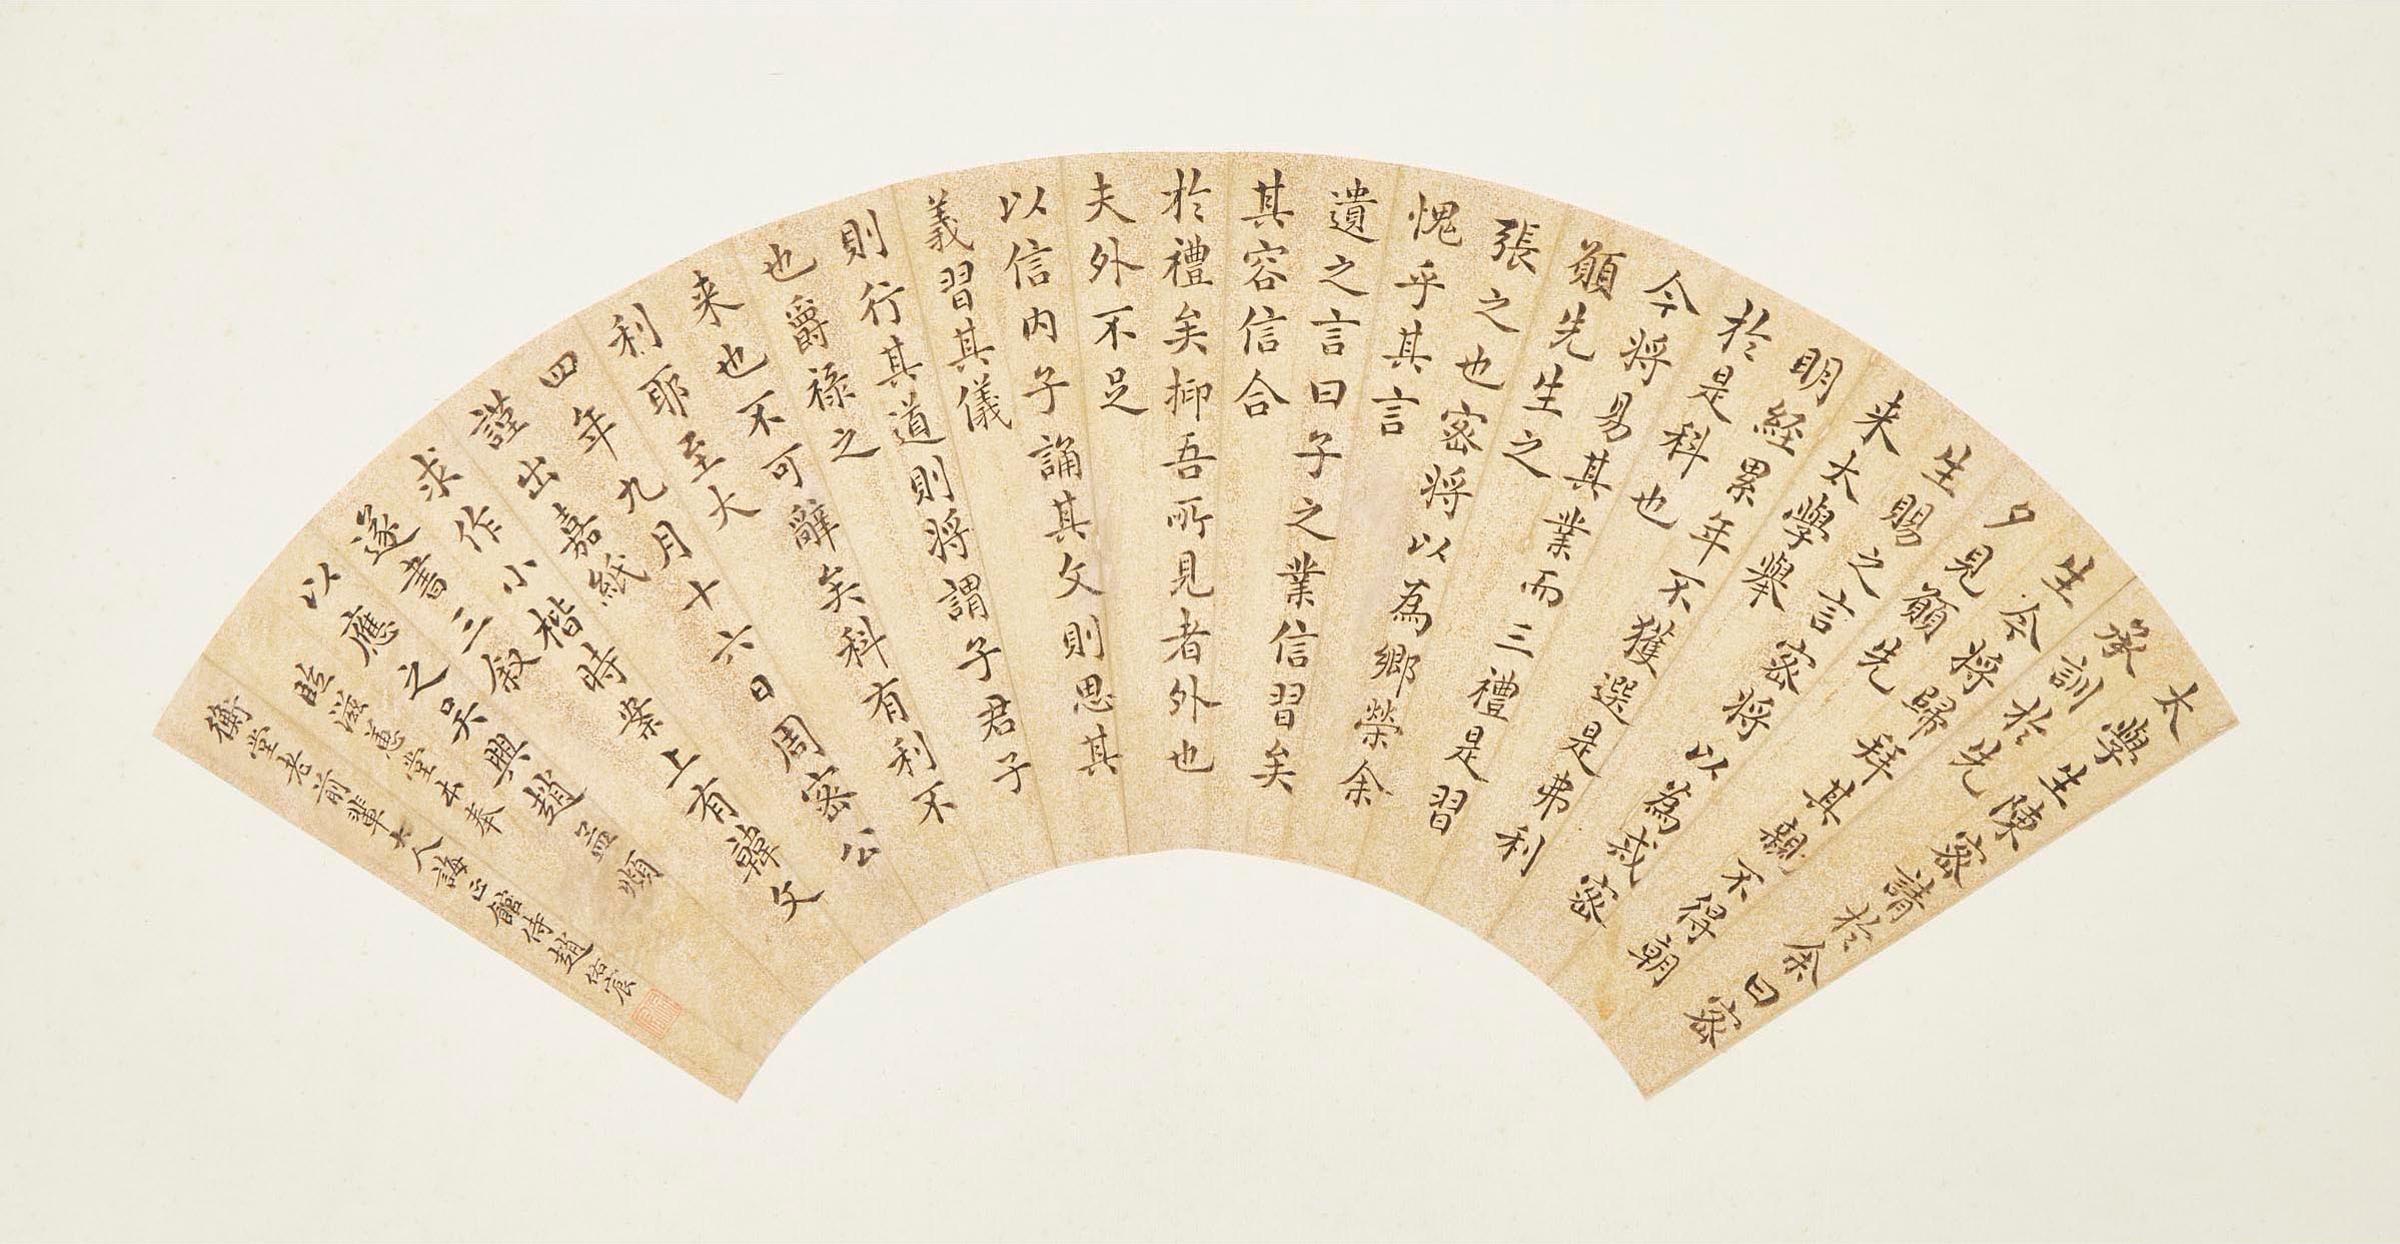 太學生陳密請於余曰密
承訓於先
生今將歸拜其親不得朝
夕見願先
生賜之言密將以為戒密
来太學舉
明經累年不獲選是弗利
於是科也
今將易其業而三禮是習
願先生之
張之也密將以為鄉榮余
愧乎其言
遺之言曰子之業信習矣
其容信合
於禮矣抑吾所見者外也
夫外不足
以信内子誦其文則思其
義習其儀
則行其道則將謂子君子
也爵祿之
来也不可辭矣科有利不
利耶至大
四年九月十六日周密公
謹出嘉紙
求作小楷時案上有韓文
遂書三叙
以應之吴興趙孟頫
臨滋蕙堂本奉
衡堂老前輩大人誨正館侍趙佑宸